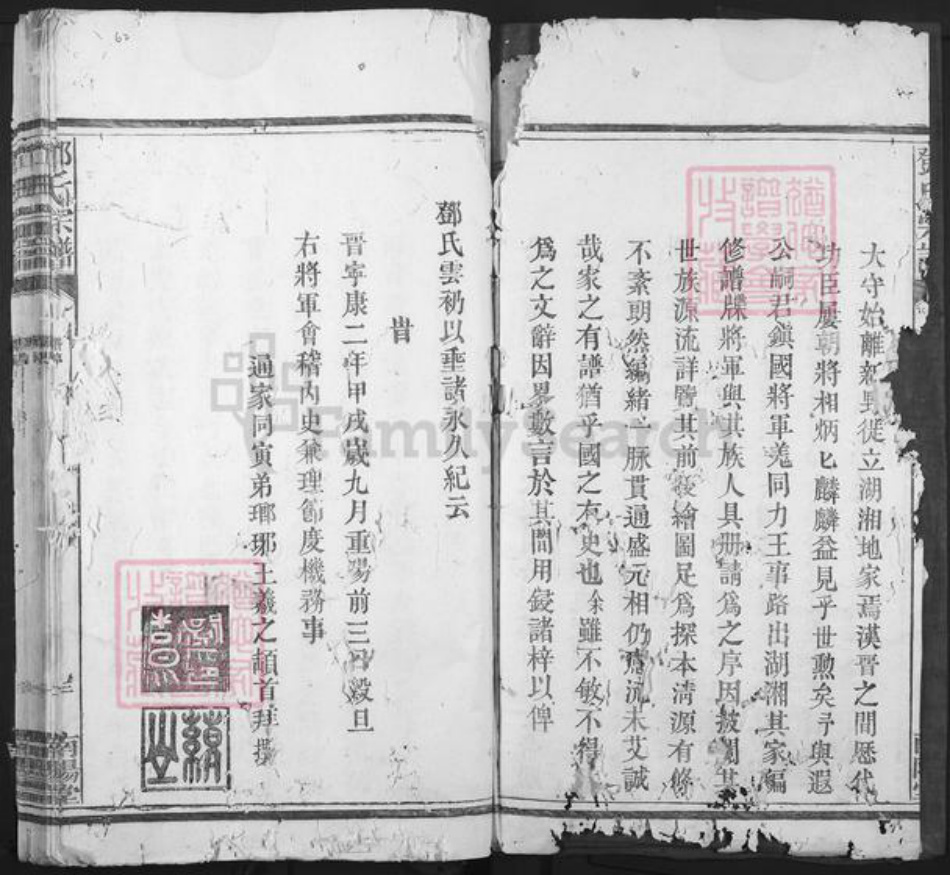 大守始離新野徙立湖湘地家焉漢晉之間歷代
功臣屢朝將相炳匕麟麟益見乎世勲矣予與遐
公嗣君鎮國將軍羗同力王事路出湖湘其家編
修譜牒將軍與其族人具册請爲之序因披閲其
世族源流詳覽其前後繪圖足爲探本淸源有條
不紊朗然編緒一脉貫通盛元相仍流未艾誠
哉家之有譜猶乎國之有史也余雖不敏不得
爲之文辭因畧數言於其間用鋟諸梓以俾
鄧氏雲礽以垂諸永久紀云
旹
晋寧康二年甲戌歲九月重陽前三日穀旦
右將軍會稽內史兼理節度機務事
通家同寅弟瑯琊王羲之頓首拜撰
鄧氏宗譜
南陽堂
FamilySearch
62